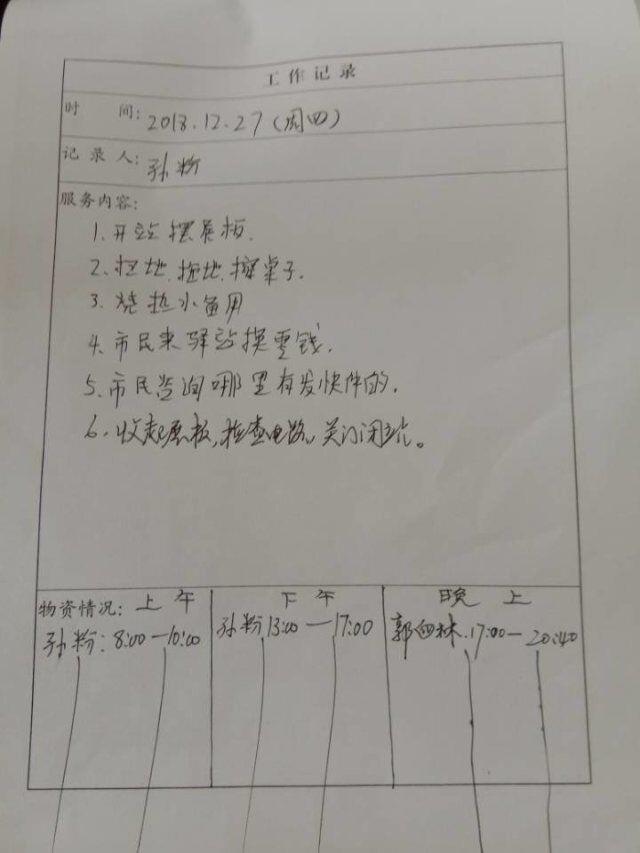 工作记录
时 间: 2018.12.27(周四)
记录人: 孙粉
服务内容:
1.开站摆展板.
2.扫地.拖地.擦桌子.
3.烧热水备用
4.市民来驿站换零钱.
5.市民咨询哪里有发快件的.
6.收起展板,检查电路,关门闭站。
物资情况: 上午 下午 晚上
孙粉:8:00—10:00 孙粉13:00—17:00 郭四林.17:00—20:40